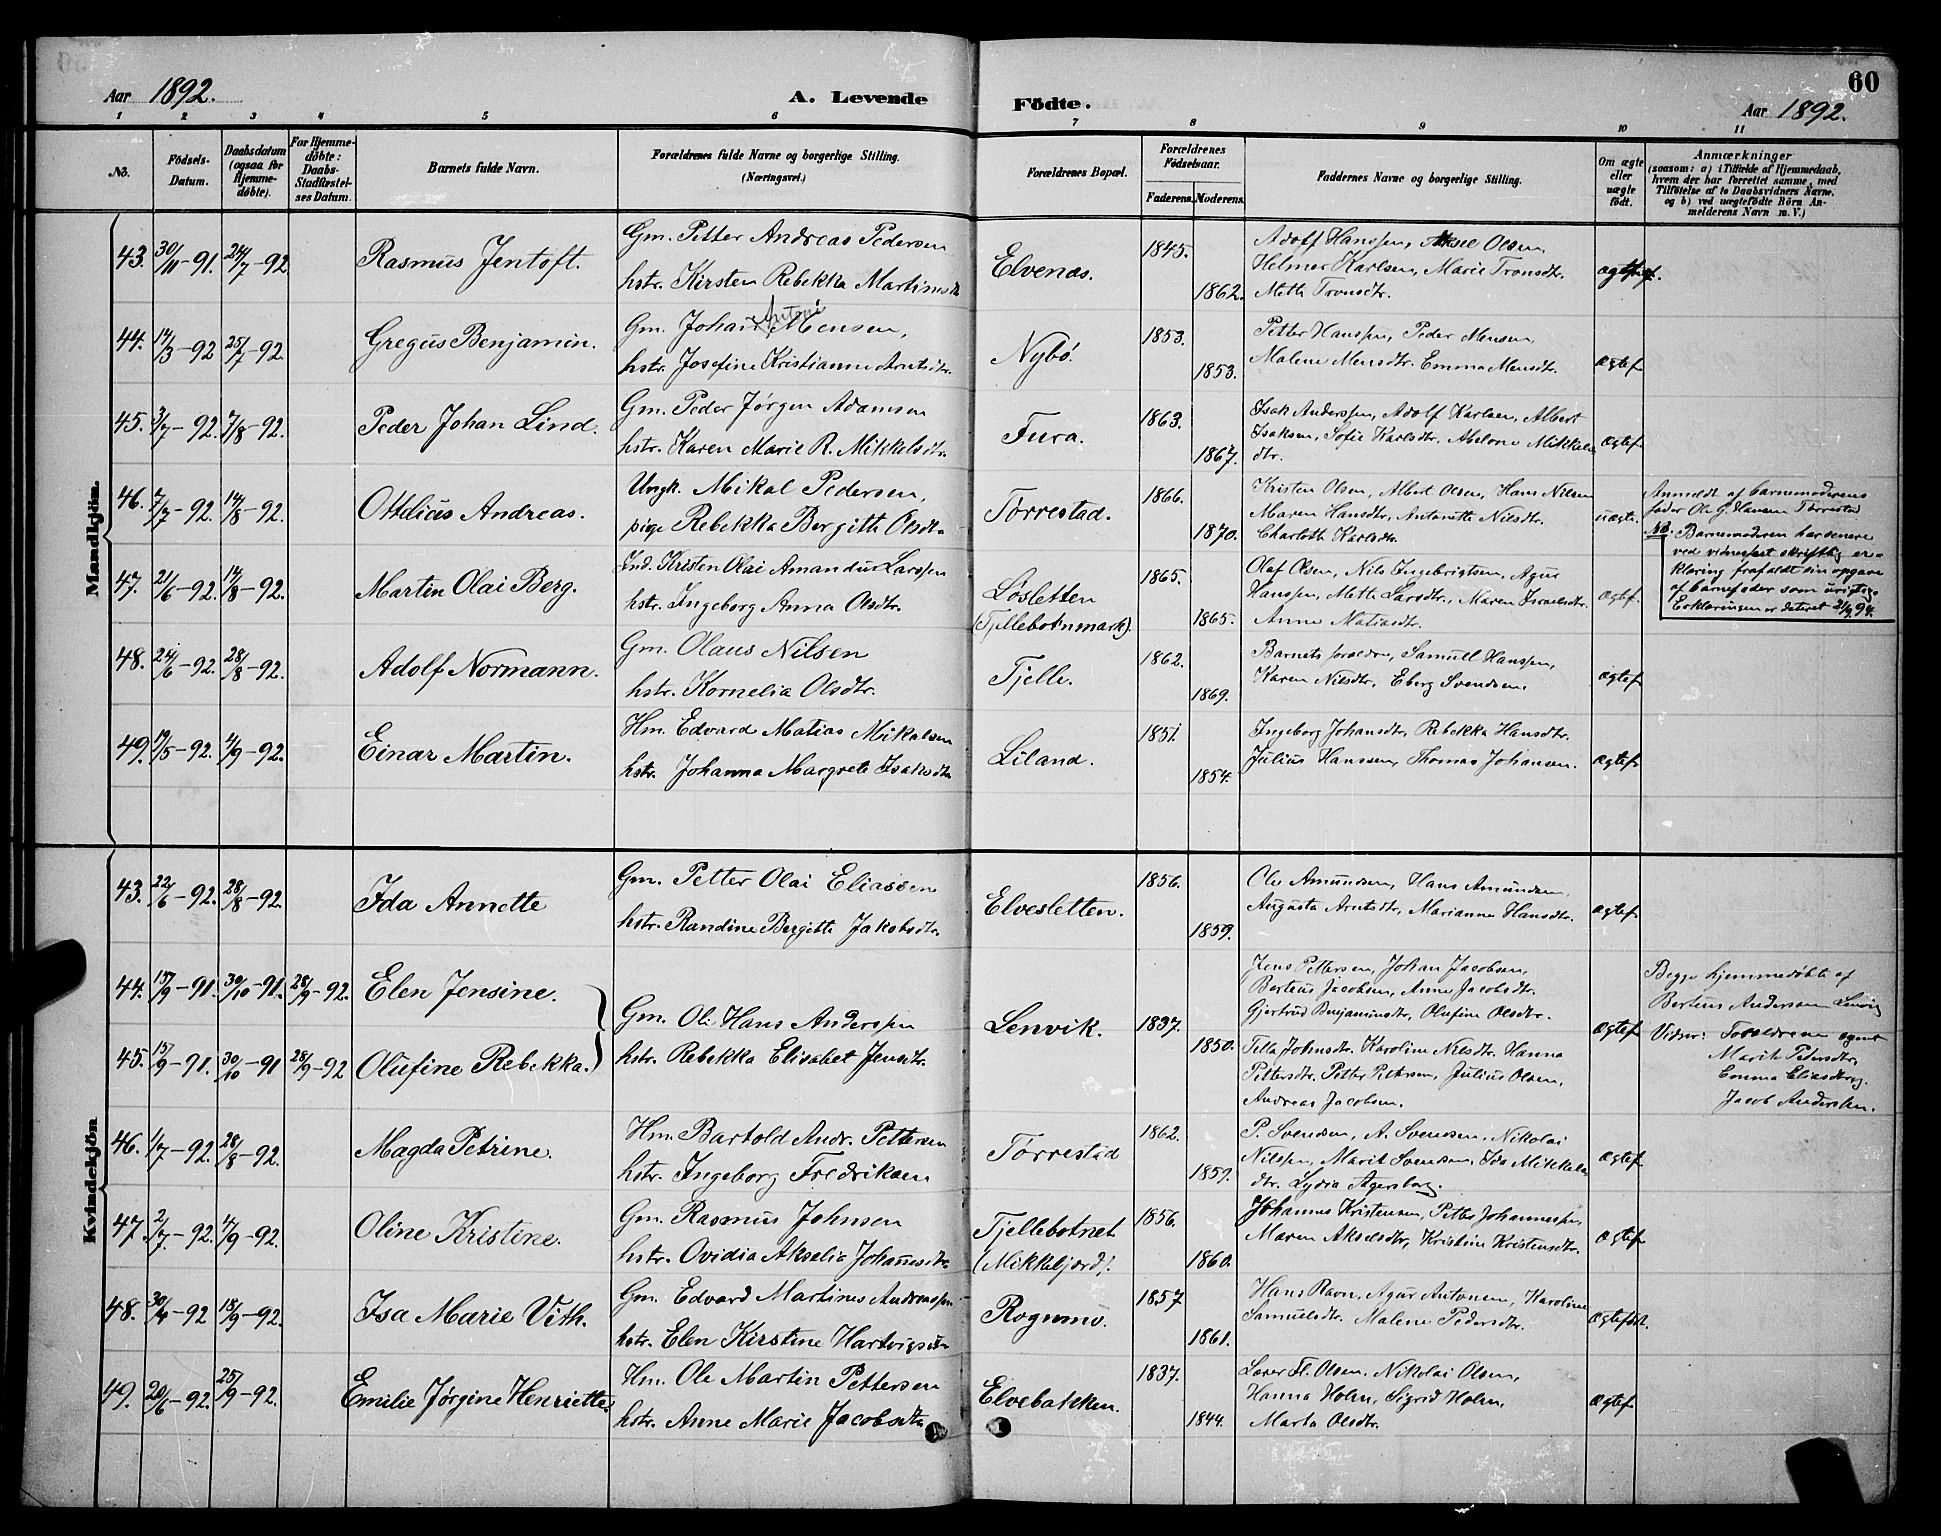 Aar 1892. A. Levende
Födte. 60
Aar 1892.
1 2 3 4 5 6 7 8 9 10 11
No. Födsels-Datum. Daabsdatum (ogsaa for Hjemmedöbte). For Hjemmedöbte: Daabs-Stadfæstelses Datum. Barnets fulde Navn. Forældrenes fulde Navne og borgerlige Stilling. (Næringsvei.) Forældrenes Bopæl. Forældrenes Födselsaar. Faderens. Moderens. Faddernes Navne og borgerlige Stilling. Om ægte eller uægte födt. Anmærkninger (saasom: a) i Tilfælde af Hjemmedaab, hvem der har forrettet samme, med Tilföielse af to Daabsvidners Navne, og b) ved uægtefödte Börn Anmelderens Navn m. V.)
Mandkjön.
43. 30/11-91. 24/7-92 Rasmus Jentoft. Gm. Petter Andreas Pedersen
hstr. Kirsten Rebekka Martinsdtr. Elvenæs. 1845. 1862. Adolf Hanssen, Aksel Olsen,
Helmer Karlsen, Marie Tronsdtr.
Meth Tronsdtr. ægtef.
44. 14/3-92 25/7-92. Gregus Benjamin. Gm. Johan Antoni Mensen,
hstr. Josefine Kristianne Arntsdtr. Nybö. 1853. 1853. Petter Hanssen, Peder Mensen
Malene Mensdtr. Emma Mensdtr. ægtef
45. 3/7-92. 7/8-92. Peder Johan Lind. Gm. Peder Jørgen Adamsen
hstr. Karen Marie R. Mikkelsdtr. Fura. 1863. 1867. Isak Anderssen, Adolf Karlsen, Albert
Isaksen, Sofie Karlsdtr, Abelone Mikkels
dtr. ægtef
46. 7/7-92. 14/8-92. Ottelius Andreas. Ungk. Mikal Pedersen,
pige Rebekka Bergith Olsdtr. Tørrestad. 1866. 1870. Kristen Olsen, Albert Olsen, Hans Nilsen
Maren Hansdtr, Antonette Nilsdtr.
Charloth Karlsdtr. uægte. Anmeldt af barnemoderens
fader Ole G. Hansen Tørrestad
NB. Barnemoderen har senere
ved vidnefast skriftlig er-
klæring frafaldt sin opgave
af barnefader som urigtig.
Erklæringen er dateret 21/9 94.
47. 21/6-92. 14/8-92. Martin Olai Berg. Ind. Kristen Olai Amandus Larssen
hstr. Ingeborg Anna Olsdtr. Løsletten
(Fjellebotnmark). 1865. 1865. Olaf Olsen, Nils Ingebrigtsen, Agur
Hanssen, Meth Larsdtr, Maren Israelsdtr.
Anne Matiasdtr. ægtef.
48. 24/6-92. 28/8-92. Adolf Normann. Gm. Olaus Nilsen
hstr. Kornelia Olsdtr. Fjelle. 1862. 1869. Barnets forældre, Samuel Hanssen,
Karen Nilsdtr, Eberg Svendsen. ægtef
49. 19/5-92. 4/9-92. Einar Martin. Hm. Edvard Matias Mikalsen
hstr. Johanna Margrete Isaksdtr Liland. 1851. 1854. Ingeborg Johansdtr, Rebekka Hansdtr.
Julius Hanssen, Thomas Johansen. ægtef.
Kvindekjön
43. 22/6-92. 28/8-92. Ida Annette Gm. Petter Olai Eliassen
hstr. Randine Bergitte Jakobsdtr. Elvesletten. 1856. 1859. Ole Amundsen, Hans Amundsen
Augusta Arntsdtr, Marianne Hansdtr. ægtef
44. 15/9-91. 30/10-91. 28/9-92. Elen Jensine.
45. 15/9-91. 30/10-91 28/9-92 Olufine Rebekka. Gm. Ole Hans Anderssen
hstr. Rebekka Elisabet Jensdtr. Lenvik. 1837. 1850. Jens Pettersen, Johan Jacobsen,
Berteus Jacobsen, Anne Jacobsdtr.
Gjertrud Benjaminsdtr, Olufine Olsdtr.
Tilla Johnsdtr. Karoline Nilsdtr. Hanna
Pettersdtr. Petter Pettersen, Julius Olsen,
Andreas Jacobsen. ægtef Begge hjemmedøbte af
Berteus Andersen Lenvig
Vidner: Forældrene samt
Marit Pedersdtr,
Emma Eliasdtr og
Jacob Anderssen.
46. 1/7-92. 28/8-92. Magda Petrine. Hm. Bartold Andr. Pettersen
hstr. Ingeborg Fredriksen Tørrestad 1862. 1859. P. Svendsen, A. Svendsen, Nikolai
Nilssen, Marit Svendsen, Ida Mikkels
dtr. Lydia Agersborg. ægtef
47. 2/7-92. 4/9-92. Oline Kristine. Gm. Rasmus Johnsen
hstr. Ovidia Akselia Johannesdtr. Fjellebotnet
(Mikkeljord). 1856. 1860. Johannes Kristensen, Petter Johannessen,
Maren Akselsdtr, Kristine Kristensdtr. ægtef
48. 30/4-92 18/9-92. Isa Marie Vith. Gm. Edvard Martines Andreassen
hstr. Elen Kirstine Hartvigsdtr Rognmo. 1857 1861. Hans Ravn, Agur Antonsen, Karoline
Samuelsdtr. Malene Pedersdtr. ægtefödt.
49. 20/6-92. 25/9-92. Emilie Jørgine Henriette. Hm. Ole Martin Pettersen
hstr. Anne Marie Jacobsdtr Elvebakken. 1837. 1844. Lærer Fl. Olsen. Nikolai Olsen,
Hanna Holm, Sigrid Holm,
Marta Olsdtr. ægtef